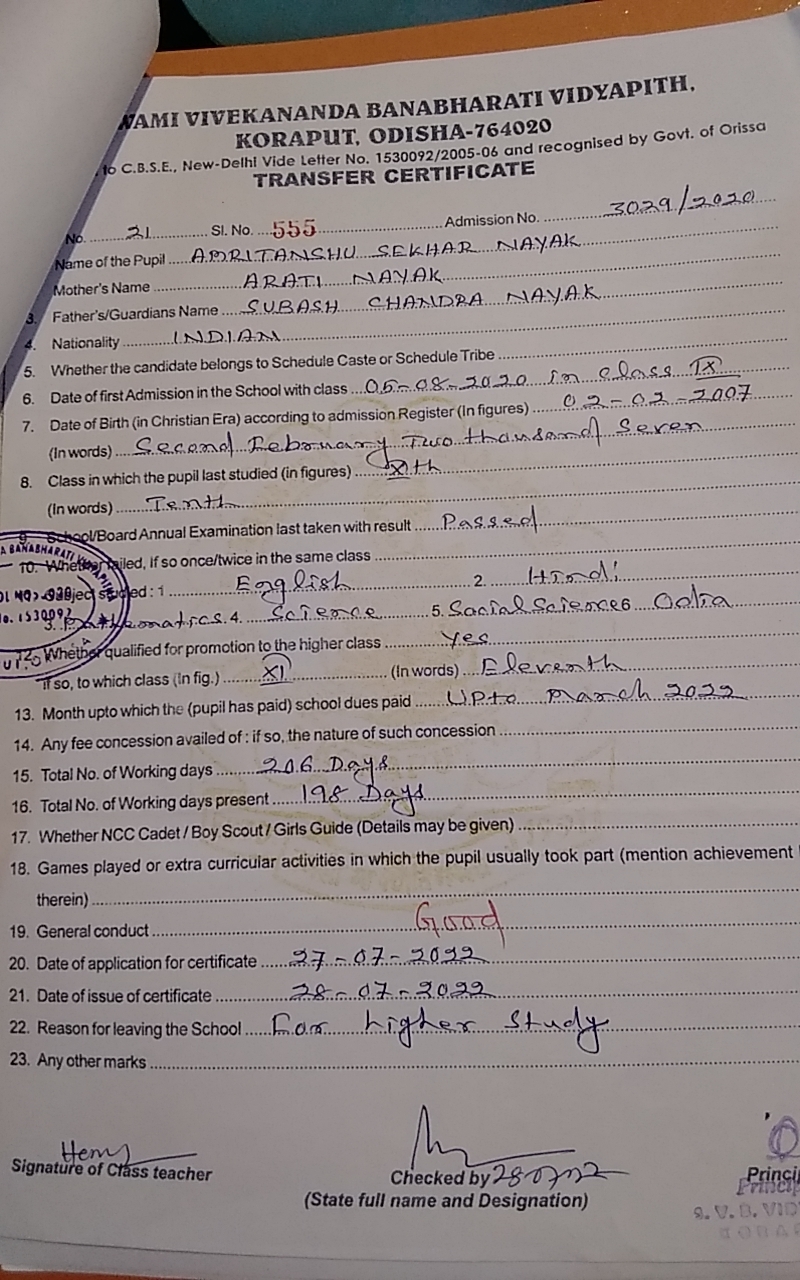 WAMI VIVEKANANDA BANABHARATI VIDYAPITH,
KORAPUT, ODISHA-764020
to C.B.S.E., New-Delhi Vide Letter No. 1530092/2005-06 and recognised by Govt. of Orissa
TRANSFER CERTIFICATE
No. 21 Sl. No. 555 Admission No. 3029/2020
Name of the Pupil AMRITANSHU SEKHAR NAYAK
Mother's Name ARATI NAYAK
3. Father's/Guardians Name SUBASH CHANDRA NAYAK
4. Nationality INDIAN
5. Whether the candidate belongs to Schedule Caste or Schedule Tribe
6. Date of first Admission in the School with class 05-08-2020 in class IX
7. Date of Birth (in Christian Era) according to admission Register (In figures) 02-02-2007
(In words) Second Febouary Two thousand Seven
8. Class in which the pupil last studied (in figures) Xth
(In words) Tenth
9. School/Board Annual Examination last taken with result Passed
10. Whether failed, if so once/twice in the same class
Subject studied : 1 English 2. Hindi
3. Mathematics 4. Science 5. Social Science 6 Odia
12. Whether qualified for promotion to the higher class Yes
If so, to which class (In fig.) XI (In words) Eleventh
13. Month upto which the (pupil has paid) school dues paid Upto March 2022
14. Any fee concession availed of : if so, the nature of such concession
15. Total No. of Working days 206 Days
16. Total No. of Working days present 198 Days
17. Whether NCC Cadet / Boy Scout / Girls Guide (Details may be given)
18. Games played or extra curricular activities in which the pupil usually took part (mention achievement
therein)
19. General conduct Good
20. Date of application for certificate 27-07-2022
21. Date of issue of certificate 28-07-2022
22. Reason for leaving the School For higher Study
23. Any other marks
Signature of Class teacher Checked by 280722 Princi
(State full name and Designation)
S. V. B. VID